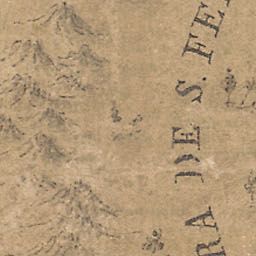 RA DE S. FE